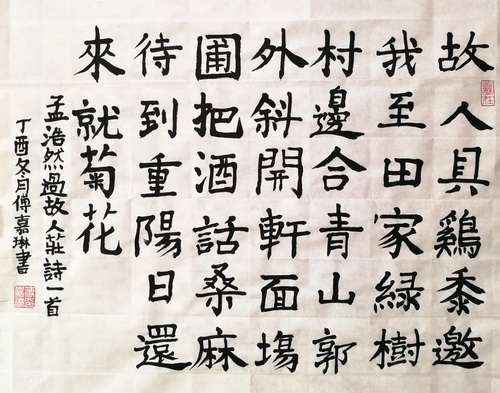 故人具鷄黍邀
我至田家緑樹
村邊合青山郭
外斜開軒面場
圃把酒話桑麻
待到重陽日還
來就菊花
孟浩然過故人莊詩一首
丁酉冬月傅嘉琳書